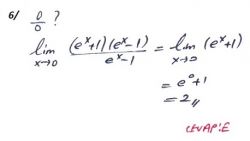 6/ 0/0 ?
lim x→0 (eˣ+1)(eˣ-1)/eˣ-1 = lim x→0 (eˣ+1)
= e⁰+1
= 2,,
CEVAP:E